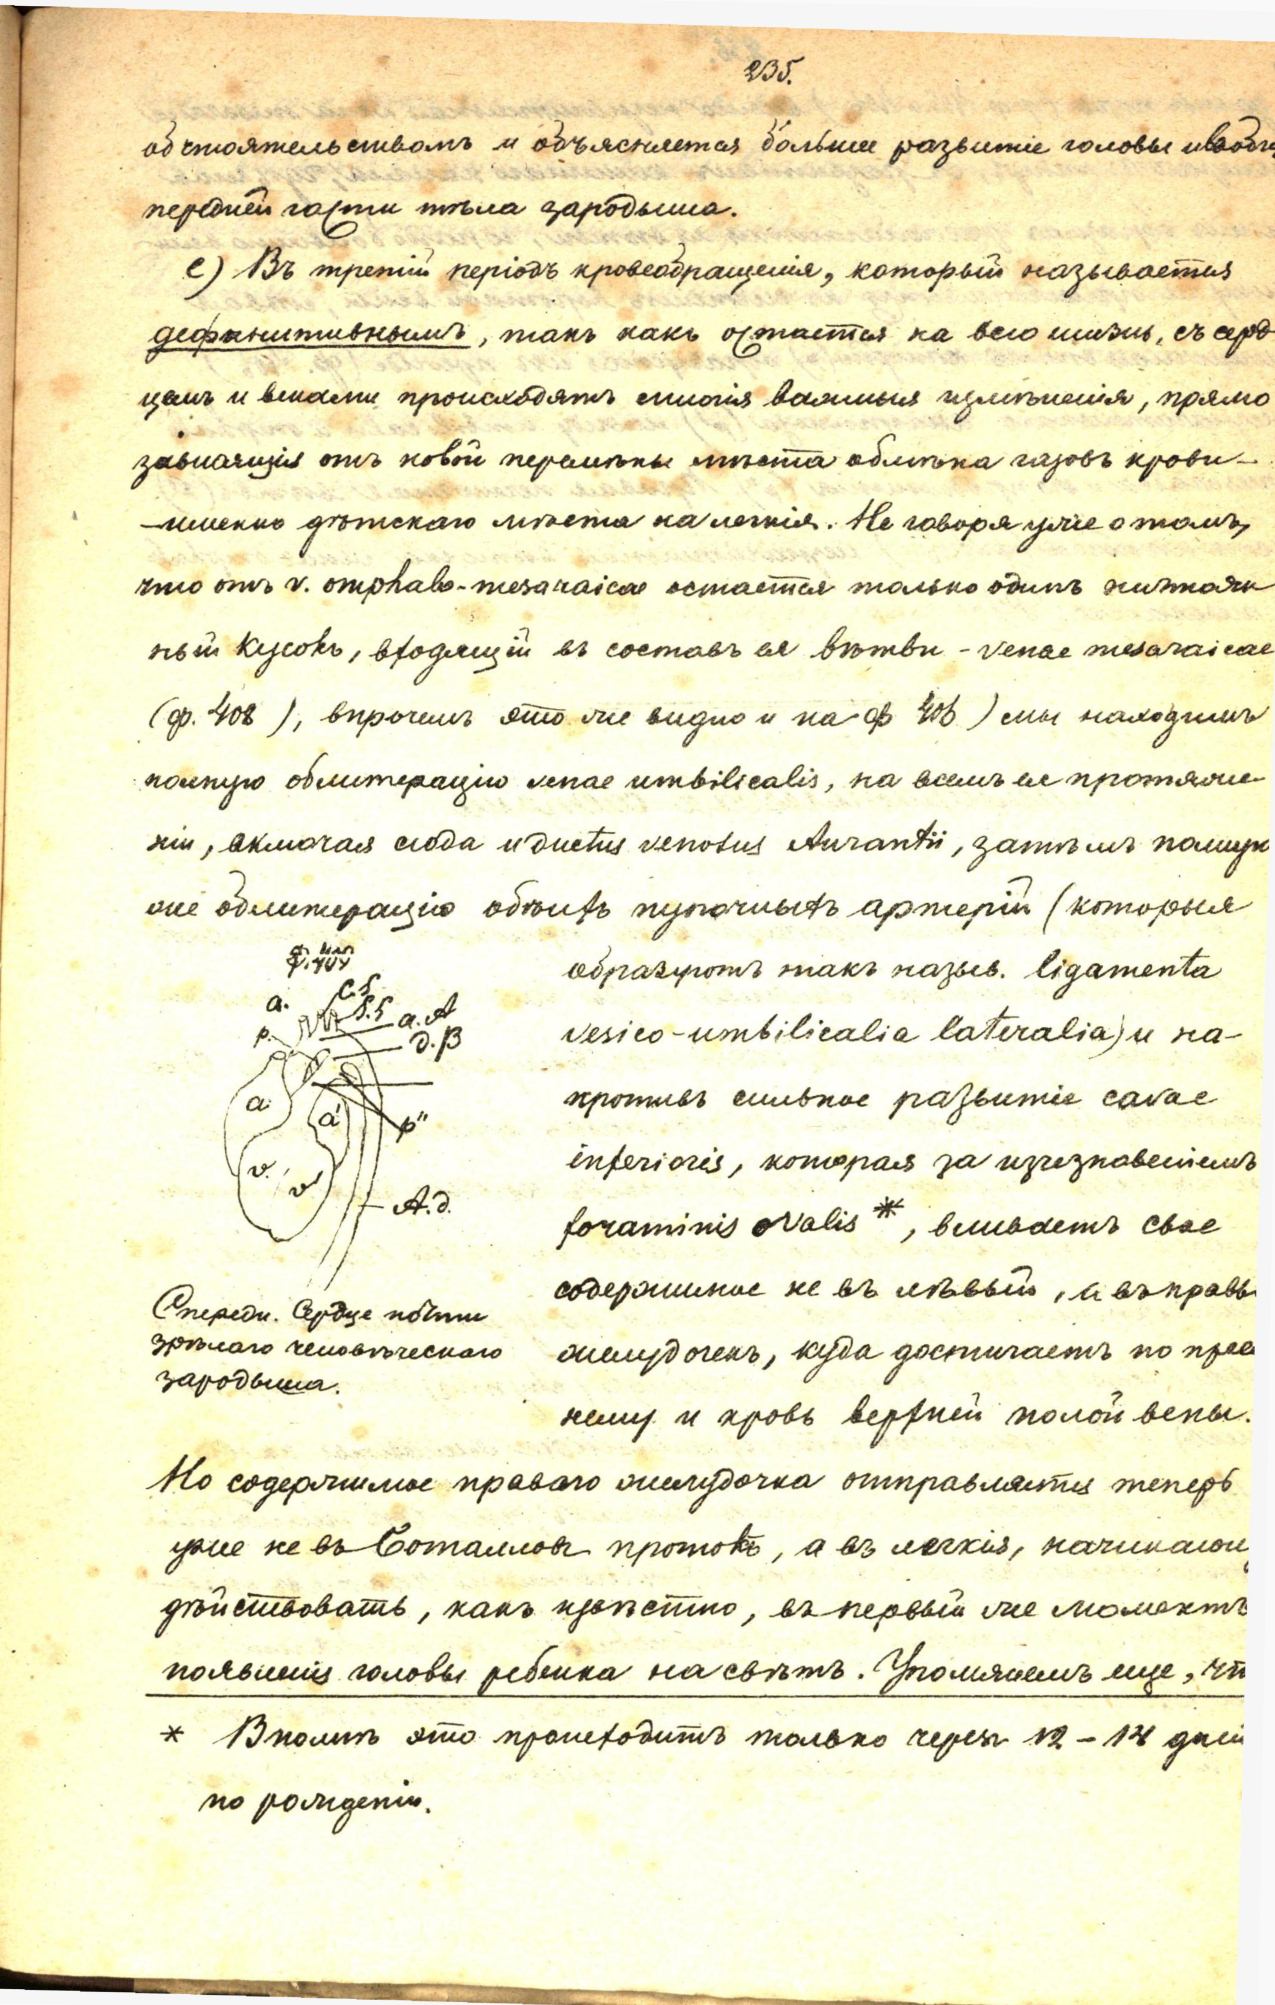 235.
обстоятельствомъ и объясняется большее развитіе головы и вообщ
передней части тѣла зародыша.
с) Въ третій періодъ кровеобращенія, который называется
дефинитивнымъ, такъ какъ остается на всю жизнь, съ серд-
цемъ и венами происходятъ многія важныя измѣненія, прямо
зависящія отъ новой перемѣны мѣста обмѣна газовъ крови –
– именно дѣтскаго мѣста на легкія. Не говоря уже о томъ,
что отъ v. omphalo-mesaraicae остается только одинъ
ный кусокъ, входящій въ составъ ея вѣтви – venae mesaraicae
(ф. 408), впрочемъ это же видно и на ф 406) мы находимъ
полную облитерацію venae umbilicalis, на всемъ ея протяже-
ніи, включая сюда и ductus venosus Aurantii, затѣмъ полную
же облитерацію обѣихъ пупочныхъ артерій (которыя
образуютъ такъ назыв. ligamenta
vesico-umbilicalia lateralia) и на-
противъ сильное развитіе cavae
inferioris, которая за изчезновеніемъ
foraminis ovalis *, вливаетъ свое
содержимое не въ лѣвый, а въ правы
желудочекъ, куда достигаетъ по преж
нему и кровь верхней полой вены.
ф. 407
a. C.S.
p. S.S a.A
d.B
a a'
p"
v. v'
A.d.
Спереди. Сердце почти
зрѣлаго человѣческаго
зародыша.
Но содержимое праваго желудочка отправляется теперь
уже не въ Боталловъ протокъ, а въ легкія, начинающ
дѣйствовать, какъ извѣстно, въ первый же моментъ
появленія головы ребенка на свѣтъ. Упомянемъ еще, чт
* Вполнѣ это происходитъ только черезъ 12 – 14 дней
по рожденіи.